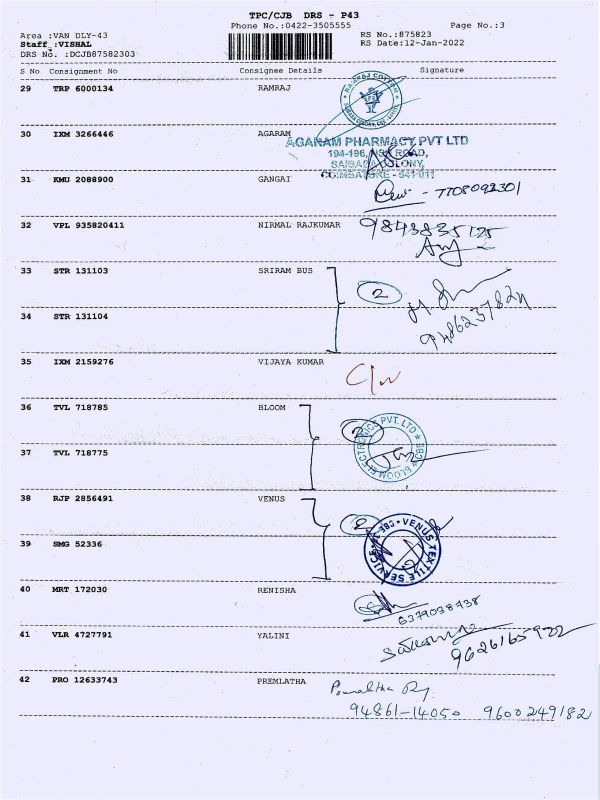 TPC/CJB DRS - P43
Phone No.:0422-3505555
Page No.:3
Area :VAN DLY-43
RS No.:875823
Staff :VISHAL
RS Date:12-Jan-2022
DRS No. :DCJB87582303
S No Consignment No Consignee Details Signature
29 TRP 6000134 RAMRAJ
RAMRAJ COTTON
30 IXM 3266446 AGARAM
AGARAM PHARMACY PVT LTD
194-196, NSR ROAD,
SAIBABA COLONY,
COIMBATORE - 641 011
31 KMU 2088900 GANGAI
- 7708092301
32 VPL 935820411 NIRMAL RAJKUMAR
9843835175
33 STR 131103 SRIRAM BUS
2
34 STR 131104
35 IXM 2159276 VIJAYA KUMAR
36 TVL 718785 BLOOM
2
BLOOM ELECTRONICS PVT. LTD ★ CBE ★
37 TVL 718775
38 RJP 2856491 VENUS
2
VENUS TEXTILE SERVICE
39 SMG 52336
40 MRT 172030 RENISHA
6379038438
41 VLR 4727791 YALINI
9626165922
42 PRO 12633743 PREMLATHA
94861-14050 9600249182